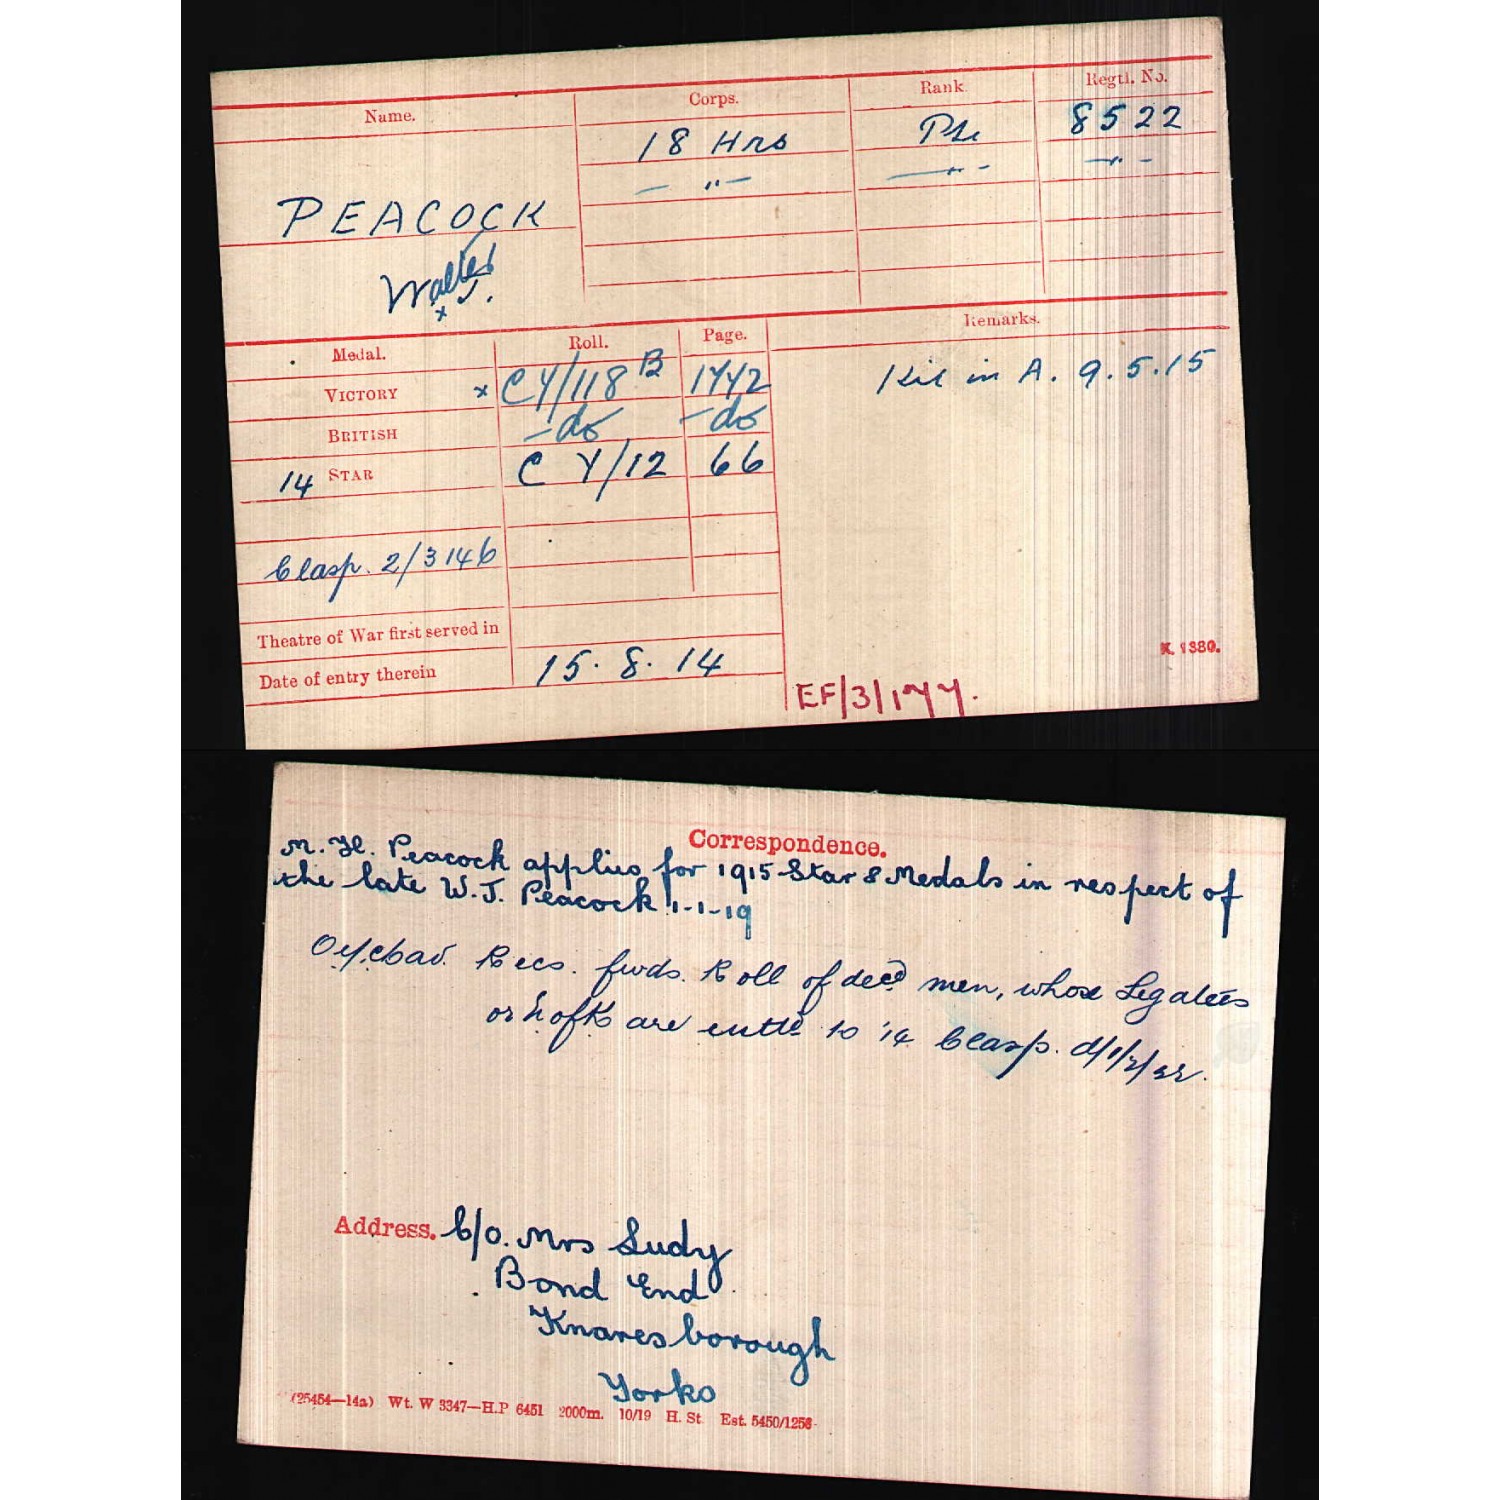 Name. Corps. Rank Regtl. No.
18 Hrs Pte 8522
— " — — " — — " —
PEACOCK
Walter J.
x
Medal. Roll. Page. Remarks.
VICTORY x CY/118 B 1772 Kil in A. 9.5.15
BRITISH - do - do
14 STAR CY/12 66
Clasp. 2/3146
Theatre of War first served in
Date of entry therein 15.8.14
K. 1380.
EF/3/177.
Correspondence.
M. H. Peacock applies for 1915 Star & Medals in respect of
the late W.J. Peacock 1-1-19
O i/c Cav. Recs. fwds. Roll of decd men, whose Legatees
or N of K are enttd to '14 Clasp. d/1/2/22.
Address. C/o. Mrs Ludy
Bond End
Knaresborough
Yorks
(25454—14a) Wt. W 3347—H.P 6451 2000m. 10/19 H. St. Est. 5450/1258